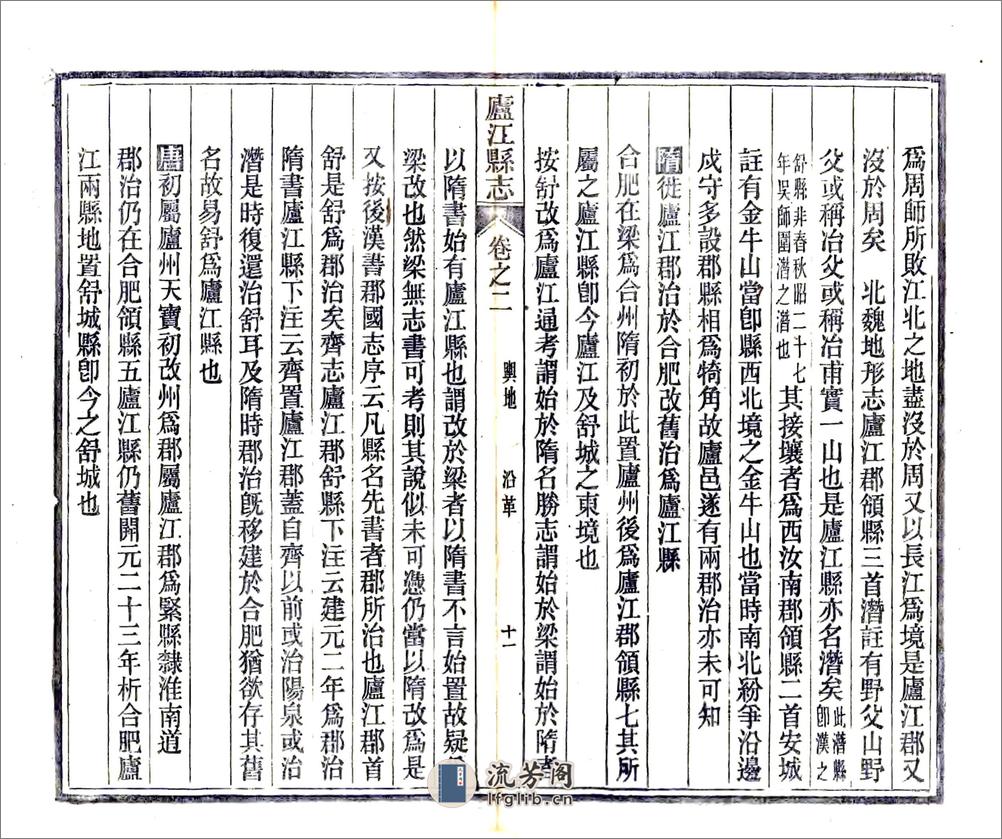 爲周師所敗江北之地盡沒於周又以長江爲境是廬江郡又
沒於周矣　北魏地形志廬江郡領縣三首潛註有野父山野
父或稱冶父或稱冶甫實一山也是廬江縣亦名潛矣此潛縣卽漢之
舒縣非春秋昭二十七年吳師圍潛之潛也其接壤者爲西汝南郡領縣二首安城
註有金牛山當卽縣西北境之金牛山也當時南北紛爭沿邊
戍守多設郡縣相爲犄角故廬邑遂有兩郡治亦未可知
隋徙廬江郡治於合肥改舊治爲廬江縣
合肥在梁爲合州隋初於此置廬州後爲廬江郡領縣七其所
屬之廬江縣卽今廬江及舒城之東境也
按舒改爲廬江通考謂始於隋名勝志謂始於梁謂始於隋者
廬江縣志　卷之二　輿地　沿革　十一
以隋書始有廬江縣也謂改於梁者以隋書不言始置故疑
梁改也然梁無志書可考則其說似未可憑仍當以隋改爲是
又按後漢書郡國志序云凡縣名先書者郡所治也廬江郡首
舒是舒爲郡治矣齊志廬江郡舒縣下注云建元二年爲郡治
隋書廬江縣下注云齊置廬江郡蓋自齊以前或治陽泉或治
潛是時復還治舒耳及隋時郡治旣移建於合肥猶欲存其舊
名故易舒爲廬江縣也
唐初屬廬州天寶初改州爲郡屬廬江郡爲緊縣隸淮南道
郡治仍在合肥領縣五廬江縣仍舊開元二十三年析合肥廬
江兩縣地置舒城縣卽今之舒城也
流芳閣
lfglib.cn